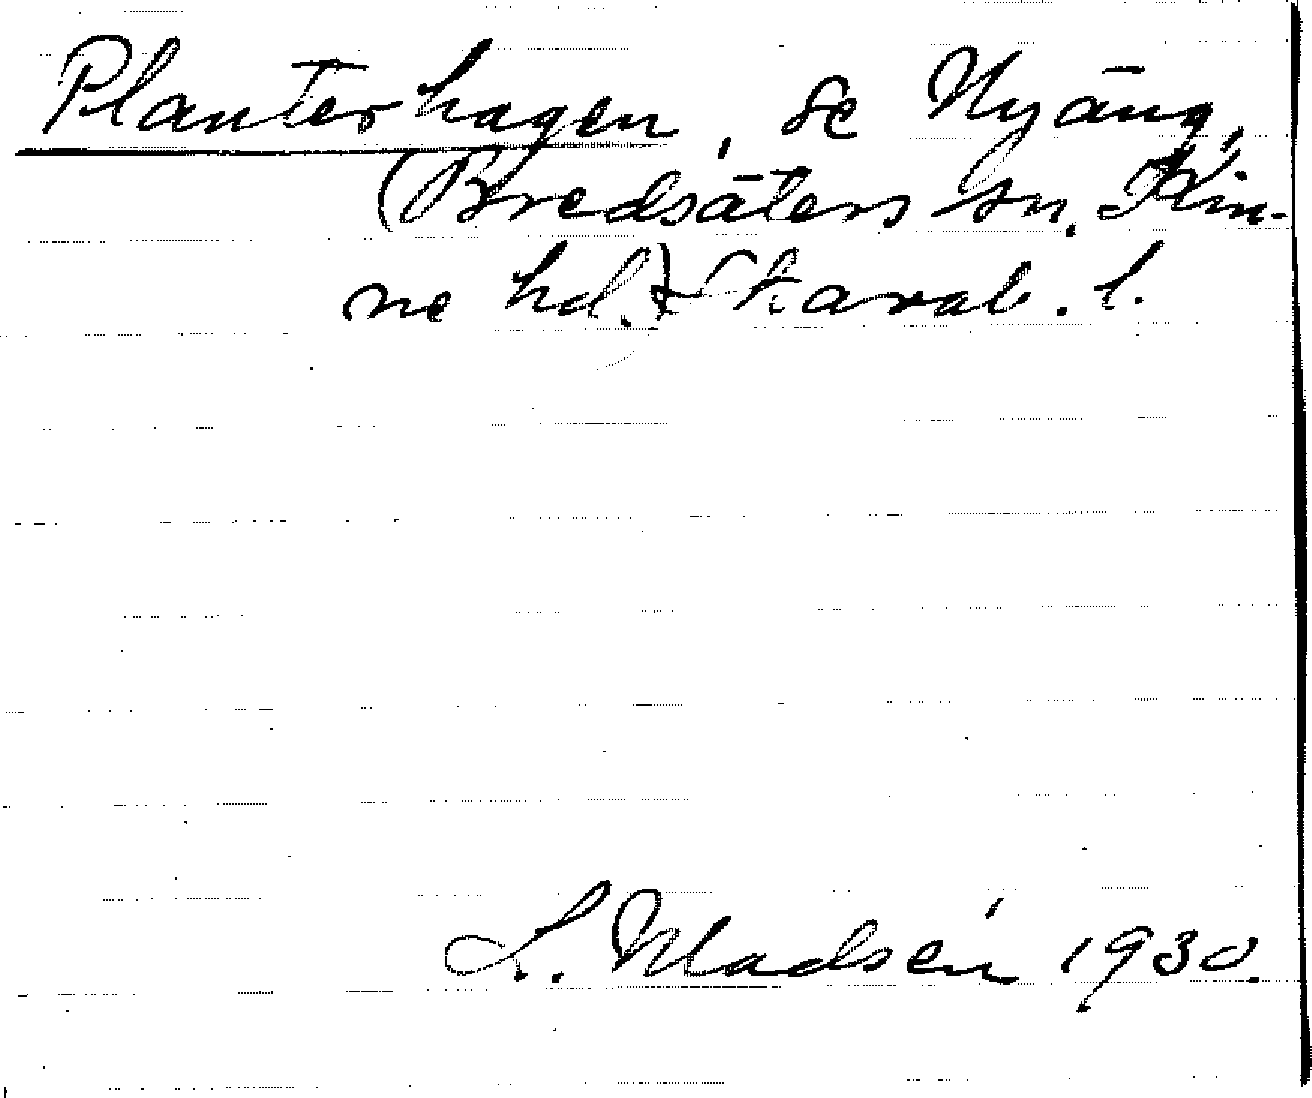 Planterhagen, se Nyäng,
(Bredsäters sn. Kin-
ne hd.) Skarab. l.
L. Madsén 1930.